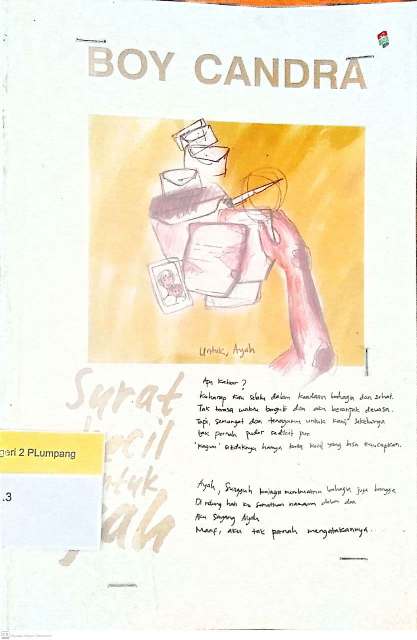 BOY CANDRA
Untuk, Ayah
Surat
Kecil
untuk
Ayah
geri 2 PLumpang
.3
Apa kabar?
Kuharap kau selalu dalam keadaan bahagia dan sehat.
Tak terasa waktu bergulir dan aku beranjak dewasa.
Tapi, semangat dan tenagamu untuk kami sekeluarga
tak pernah pudar sedikit pun.
'Kagum' setidaknya hanya kata kecil yang bisa kuucapkan.
Ayah, Sungguh
bahagia juga bangga
Di relung hati ku
namamu dalam doa
Aku Sayang Ayah
Maaf, aku tak pernah mengatakannya.